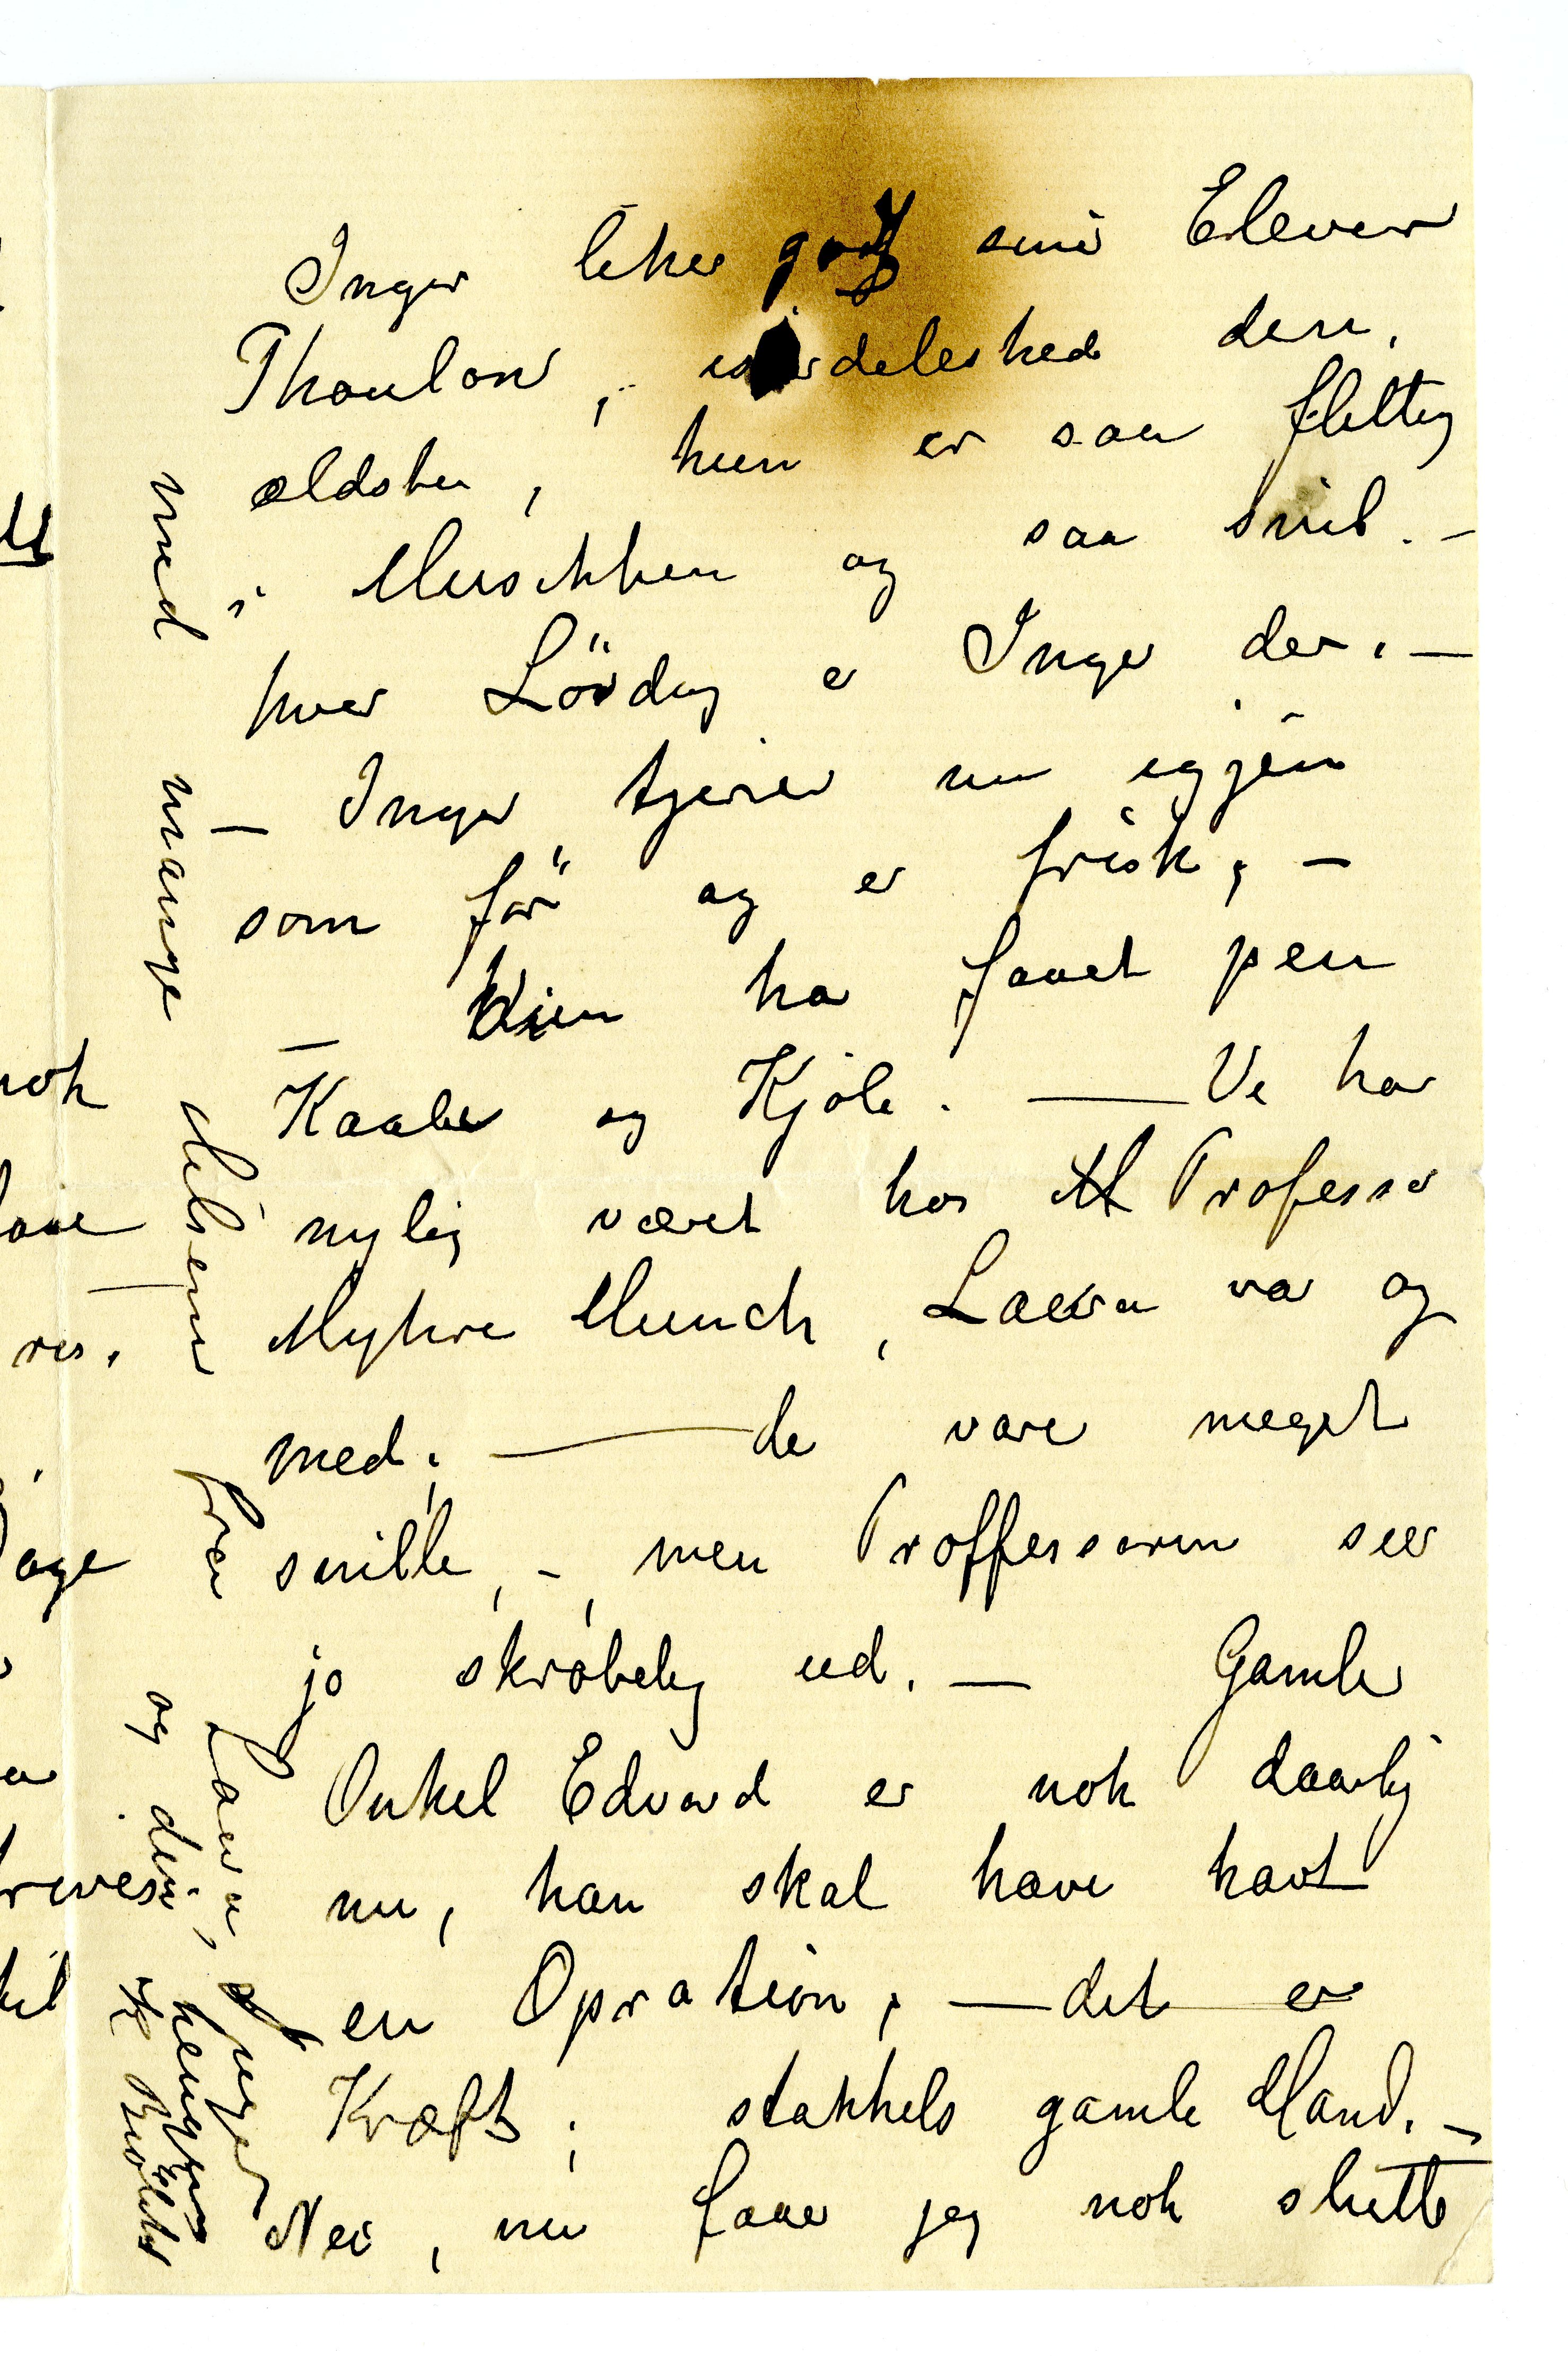 Inger liker godt sine Elever
Thaulow, isærdeleshed den,
ældste, hun er saa flittig
i Musikken og saa snil. –
hver Lövdag er Inger der. —
– Inger tjener nu igjen
som för og er frisk, –
– Hun har faaet pen
Kaabe og Kjole. — Vi har
nylig været hos M Professor
Myhre Munch, Laura var og
med; — de vare meget
snille, –, men Proffessoren seer
jo skröbelig ud. — Gamle
Onkel Edvard er nok daarlig
nu, han skal have havt
en Opration, — det er
Kræft; stakkels gamle Mand. –
Nei, nu faaer jeg nok slutte
med mange Hilsener fra Laura, Inger
og din hengivne
K Bjölstad